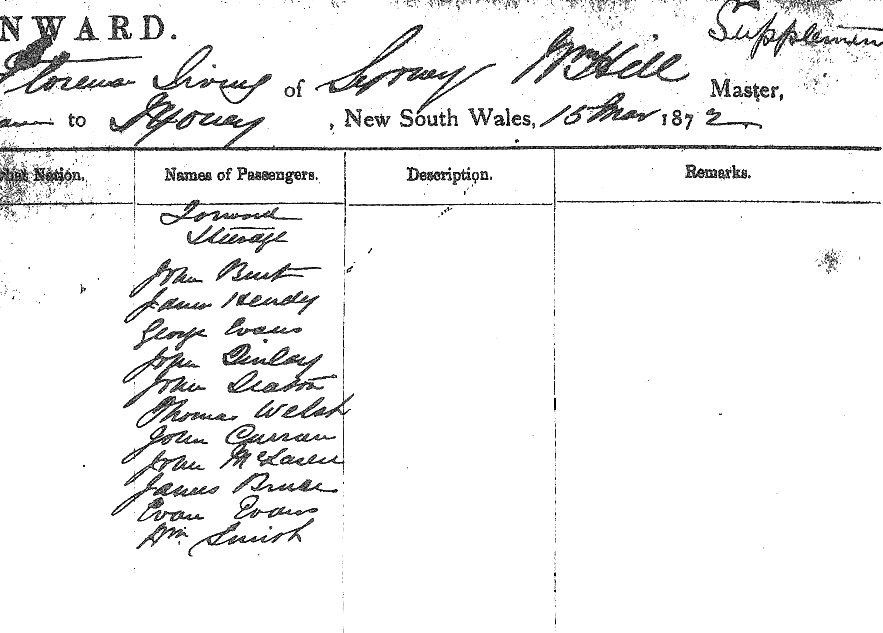 NWARD.
Supplemen
Florence Irving of Sydney Wm Hill Master,
to Sydney, New South Wales, 15 Mar 1872
hat Nation. Names of Passengers. Description. Remarks.
Forward
Steerage
John Burt
James Hendy
George Evans
John Finlay
John Seaton
Thomas Welsh
John Curran
John McLaren
James Bruce
Evan Evans
Wm. Smith